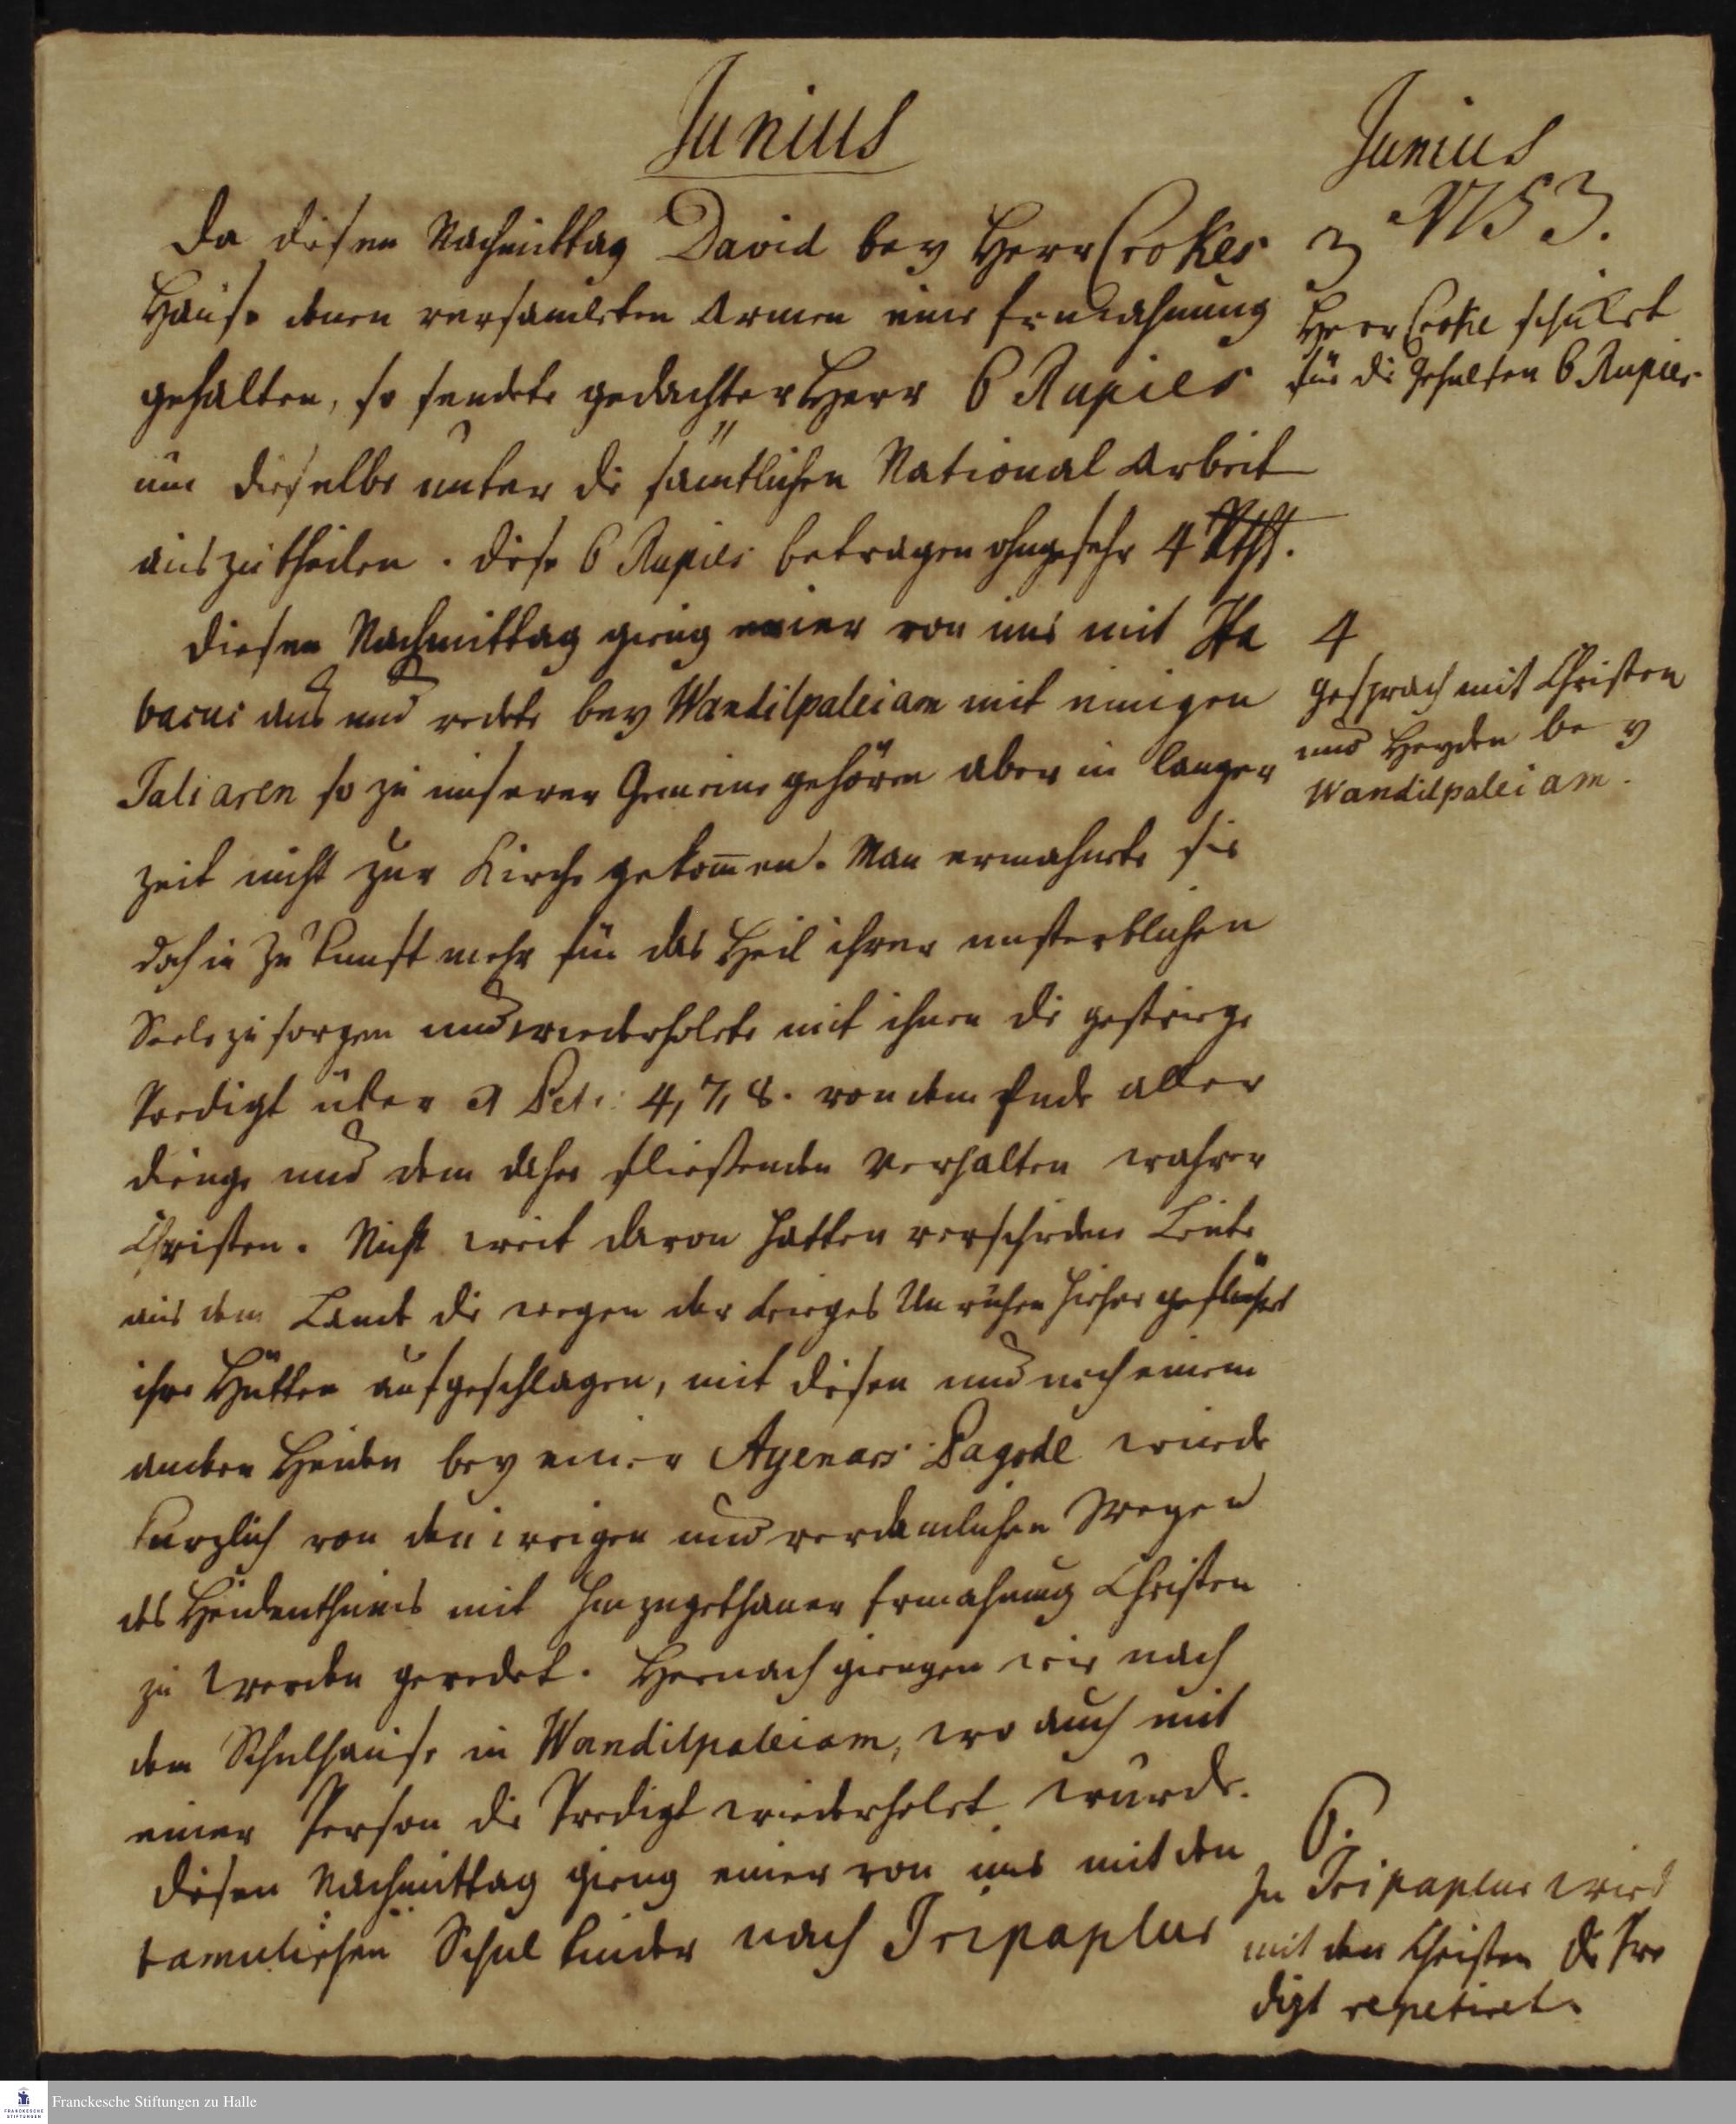 Junius
Da diesen Nachmittag David bey Herr Crokes
Hause denen versamleten Armen eine Ermahnung
gehalten, so sendete gedachter Herr 6 Rupies
um dieselbe unter die sämtlichen National Arbeit
auszutheilen. Diese 6 Rupies betragen ohngefehr 4 Rthl.
Diesen Nachmittag gieng einer von uns mit
aus und redete bey Wandilpaleiam mit einigen
Taliaren so zu unserer Gemeine gehören aber in langer
Zeit nicht zur Kirche gekom̅en. Man ermahnete sie
doch in Zukunft mehr für das Heil ihrer unsterblichen
Seele zu sorgen und wiederholete mit ihnen die gestrige
Predigt über 1 Petr: 4, 7, 8. von dem Ende aller
Dinge und dem daher fließenden Verhalten wahrer
Christen. Nicht weit davon hatten verschiedene Leute
aus dem Lande die wegen der Krieges Unruhen hieher geflüchtet
ihre Hütten aufgeschlagen, mit diesen und noch einem
andern Heiden bey einer Ayenars Pagode wurde
kürzlich von den irrigen und verdamlichen Wegen
des Heidenthums mit hinzugethaner Ermahnung Christen
zu werden geredet. Hernach giengen wir nach
dem Schulhause in Wandilpaleiam, wo auch mit
einer Person die Predigt wiederholet wurde.
Diesen Nachmittag gieng einer von uns mit den
tamulischen Schul Kinder nach Tripaplur
Junius
1753.
3
Herr Croke schicket
für die Gehülfen 6 Rupies
4
Gespräch mit Christen
und Heyden bey
Wandilpaleiam.
6.
In Tripaplur wird
mit den Christen die Pre
digt repetiret.
Franckesche Stiftungen zu Halle